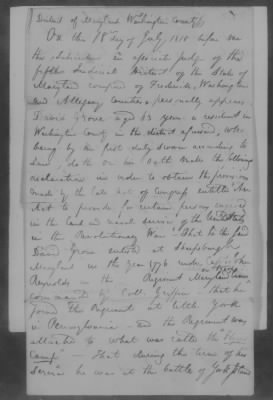 District of Maryland Washington County
On this 18 day of July 1818 before me
the Subscriber an associate judge of the
fifth Judicial District of the State of
Maryland composed of Frederick, Washington
and Allegany Counties, personally appears
David Grove aged 63 years a resident in
Washington County in the district aforesaid, who
being by me first duly sworn according to
Law, doth on his oath make the following
declaration in order to obtain the provision
made by the late act of Congress entitled An
Act to provide for certain persons engaged
in the land and naval service of the United States
in the Revolutionary War That he the said
David Grove enlisted at Sharpsburgh
Maryland in the year 1776 under Capt. John
Reynolds in the Regiment Maryland
commanded by Coll. Griffin that he
joined the Regiment at little York
in Pennsylvania and the Regiment was
attached to what was called the
Camp" - that during the term of his
Service he was at the battle of